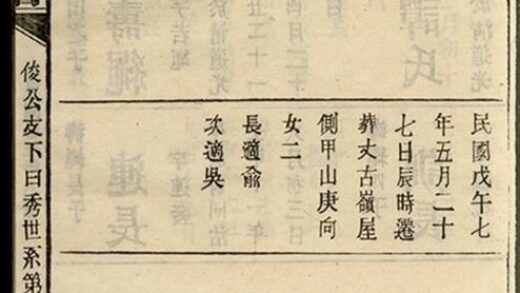 民國戊午七
年五月二十
七日辰時遷
葬丈古嶺屋
側甲山庚向
女二
長適俞
次適吳
俊公支下曰秀世系第